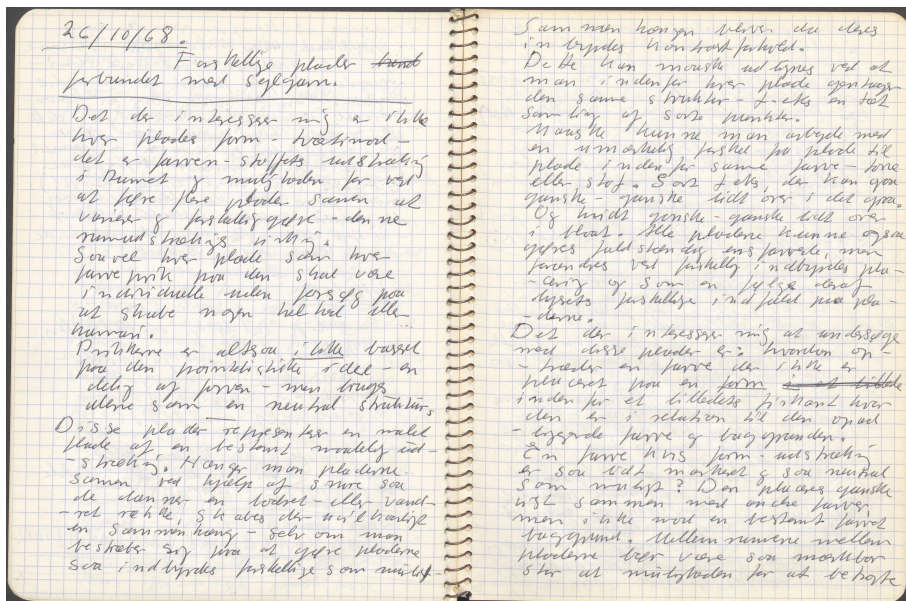 26/10/68.
Forskellige plader
forbundet med sejlgarn.
Det der interesserer mig er ikke
hver plades form - tværtimod -
det er farven - stoffets udstrækning
i rummet og muligheden for ved
at føje flere plader samen at
variere og forskelliggøre - denne
rumudstræknings virkning.
Saavel hver plade som hver
farveprik paa den skal være
individuelle uden forsøg paa
at skabe nogen helhed eller
harmoni.
Prikkerne er altsaa ikke basseret
paa den pointelistiske idee - en
deling af farven - men bruges
alene som en neutral struktur.
Disse plader repræsenterer en malet
flade af en bestemt maalelig ud-
-strækning. Hænger man pladerne
samen ved hjælp af snore saa
de danner en lodret - eller vand-
-ret række, skabes der uvilkaarligt
en sammenhæng - selv om man
bestræber sig paa at gøre pladerne
saa indbyrdes forskellige som muligt.
Sammenhængen bliver da deres
indbyrdes kontrastforhold.
Dette kan maaske udlignes ved at
man indenfor hver plade gentager
den samme struktur - f.eks en tæt
samling af sorte punkter.
Maaske kunne man arbejde med
en umærkelig forskel fra plade til
plade inden for samme farve - tone
eller stof. Sort f.eks, der kan gaa
ganske - ganske lidt over i det graa.
Og hvidt ganske - ganske lidt over
i blaat. Alle pladerne kunne ogsaa
gøres fuldstændig ens farvede, men
forandres ved forskellig indbyrdes pla-
-cering og som en følge deraf
lysets forskellige indfald paa pla-
-derne.
Det der interesserer mig at undersøge
med disse plader er: hvordan op-
-træder en farve der ikke er
placeret paa en form
inden for et billedets firkant hvor
den er i relation til den opad
-liggende farve og baggrunden.
En farve hvis form - udstrækning
er saa lidt markeret og saa neutral
som muligt? Den placeres ganske
vist sammen med andre farver,
men ikke mod en bestemt farvet
baggrund. Mellemrummene mellem
pladerne bør være saa mærkbar
stor at muligheden for at betragte